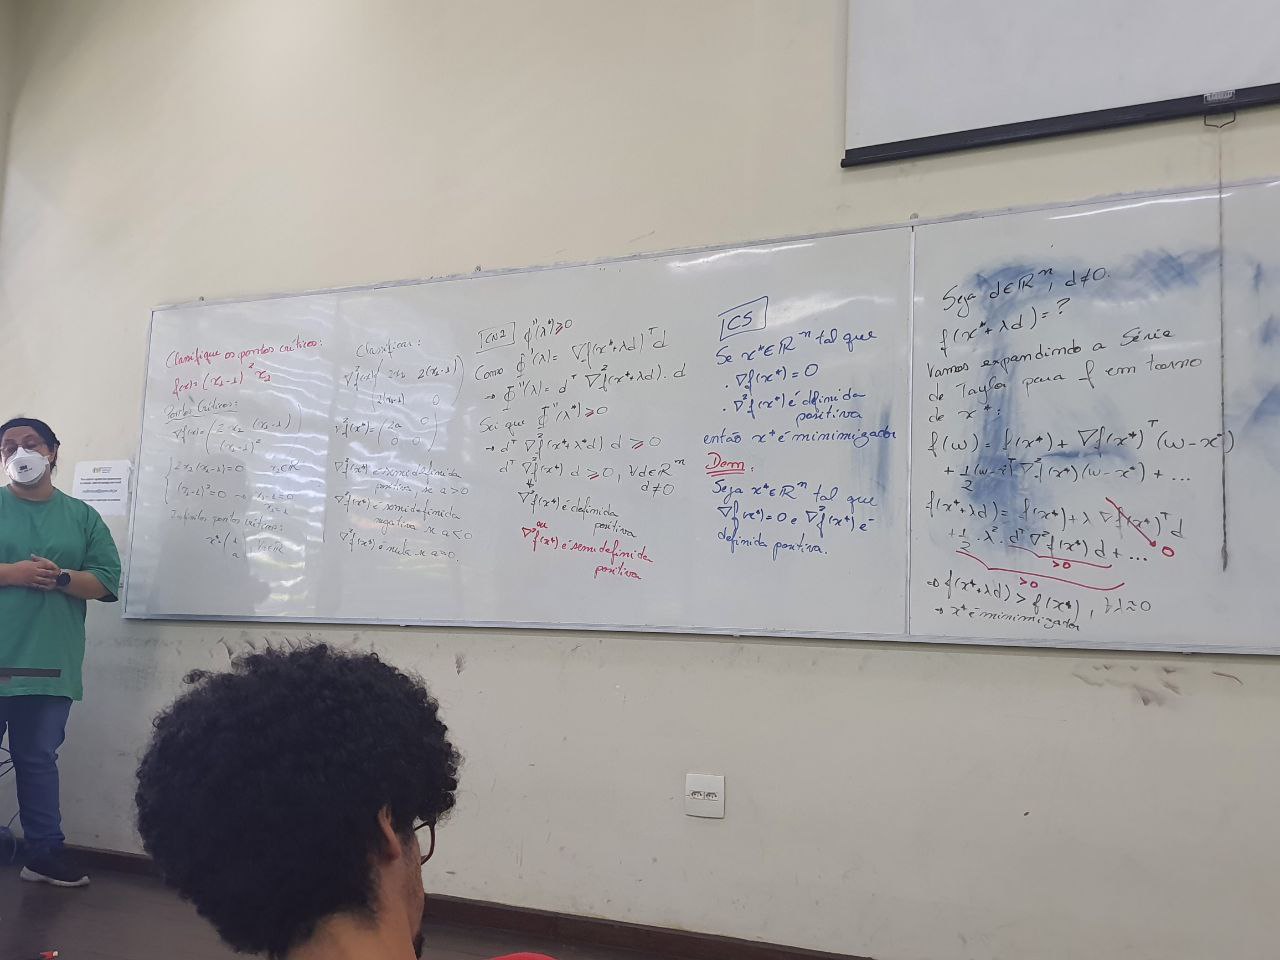 Classifique os pontos críticos:
f(x) = (x₁-1)² x₂
Pontos Críticos:
∇f(x) = (2 x₂ (x₁-1)
(x₁-1)²)
2x₂(x₁-1)=0 x₂∈ℝ
(x₁-1)²=0 → x₁-1=0
x₁=1
Infinitos pontos críticos:
x* = (1
a), a∈ℝ
Classificar:
∇²f(x) = (2x₂ 2(x₁-1)
2(x₁-1) 0)
∇²f(x*) = (2a 0
0 0)
∇²f(x*) é semidefinida
positiva, se a>0
∇²f(x*) é semidefinida
negativa se a<0
∇²f(x*) é nula se a=0.
CN2 ϕ''(λ*) ≥ 0
Como ϕ'(λ) = ∇f(x*+λd)ᵀd
→ ϕ''(λ) = dᵀ ∇²f(x*+λd). d
Sei que ϕ''(λ*) ≥ 0
→ dᵀ ∇²f(x*+λ*d) d ≥ 0
dᵀ ∇²f(x*) d ≥ 0, ∀d∈ℝⁿ
d≠0
↓
∇²f(x*) é definida
positiva
ou
∇²f(x*) é semidefinida
positiva
CS
Se x*∈ℝⁿ tal que
. ∇f(x*) = 0
. ∇²f(x*) é definida
positiva
então x* é minimizador
Dem:
Seja x*∈ℝⁿ tal que
∇f(x*)=0 e ∇²f(x*) é
definida positiva.
Seja d∈ℝⁿ, d≠0.
f(x*+λd)=?
Vamos expandindo a Série
de Taylor para f em torno
de x*:
f(w) = f(x*) + ∇f(x*)ᵀ(w-x*)
+ 1/2 (w-x*)ᵀ ∇²f(x*)(w-x*) + ...
f(x*+λd) = f(x*) + λ ∇f(x*)ᵀd
+ 1/2 . λ². dᵀ ∇²f(x*) d + ... 0
>0
>0
⇒ f(x*+λd) > f(x*), ∀λ≈0
→ x* é minimizador